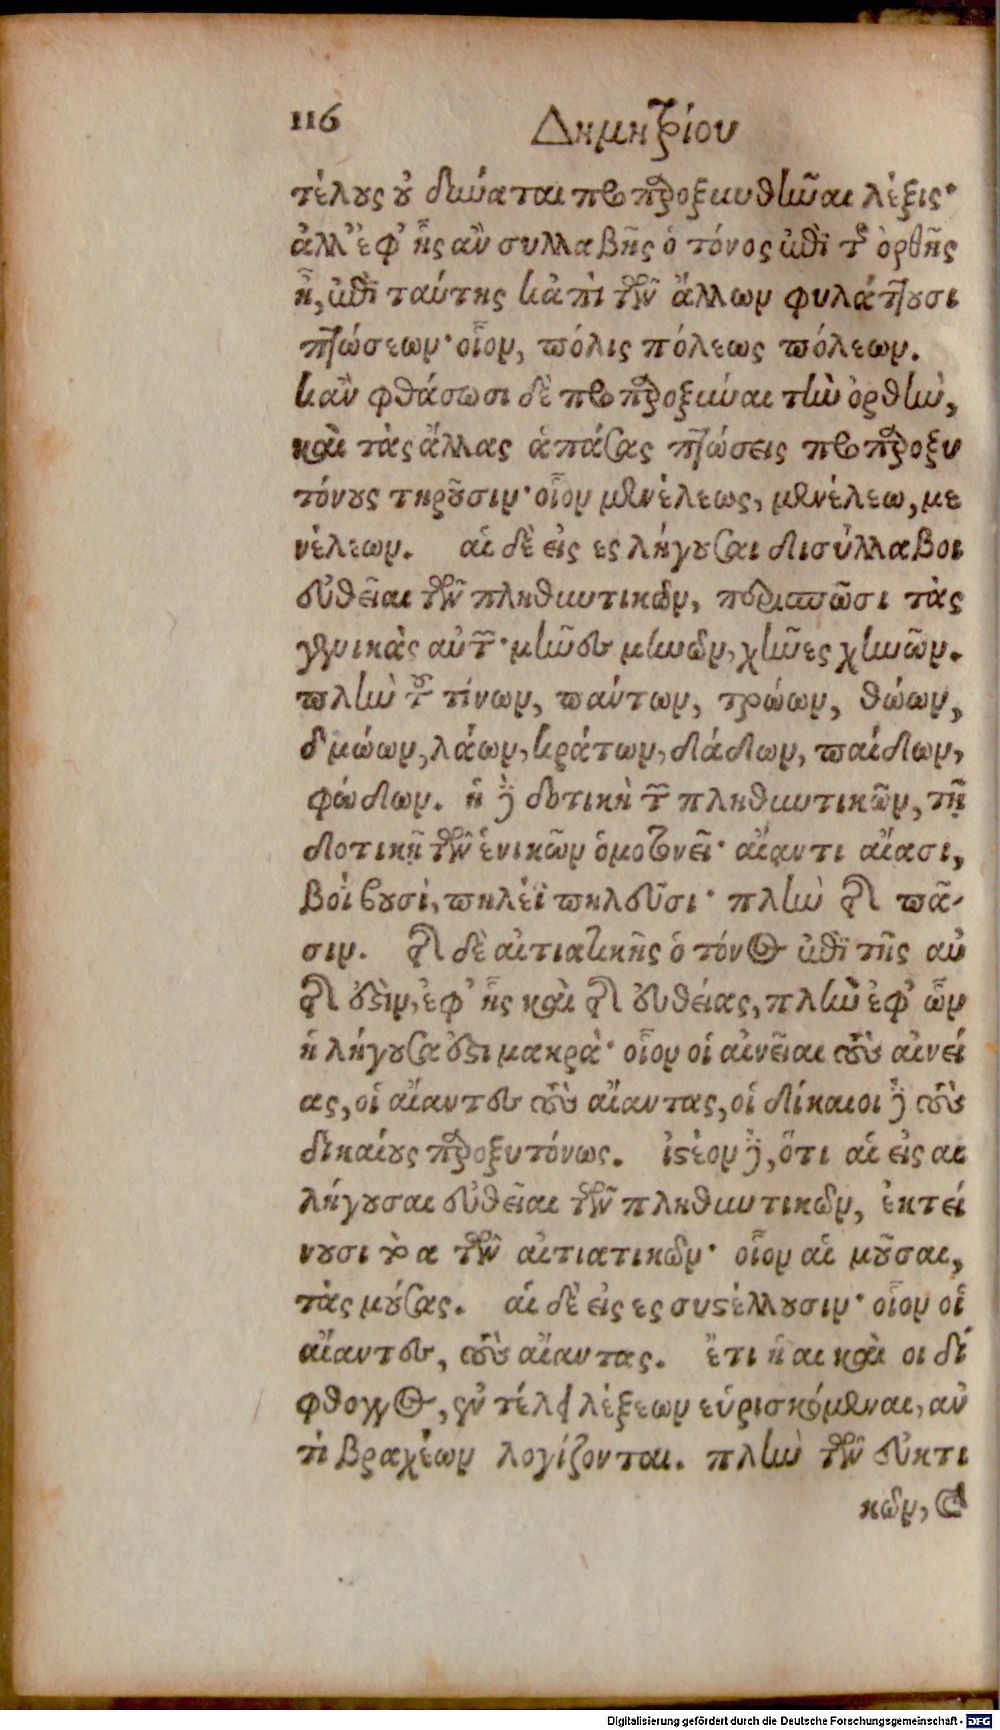 116 Δημητρίου
τέλους οὐ δύναται προπαροξυνθῆναι λέξις·
ἀλλ' ἐφ' ἧς ἂν συλλαβῆς ὁ τόνος ἐπὶ τῆς ὀρθῆς
ᾖ, ἐπὶ ταύτης κἀπὶ τῶν ἄλλων φυλάττουσι
πτώσεων· οἷον, πόλις πόλεως πόλεων.
κἂν φθάσωσι δὲ προπαροξύναι τὴν ὀρθὴν,
καὶ τὰς ἄλλας ἁπάσας πτώσεις προπαροξυ
τόνους τηροῦσιν· οἷον μενέλεως, μενέλεω, με
νέλεων. αἱ δὲ εἰς ες λήγουσαι δισύλλαβοι
εὐθεῖαι τῶν πληθυντικῶν, περισπῶσι τὰς
γενικὰς αὐτῶν· μῆνες μηνῶν, χῆνες χηνῶν.
πλὴν τοῦ τίνων, πάντων, τρώων, θώων,
δμώων, λάων, κράτων, δάδων, παίδων,
φώδων. ἡ δὲ δοτικὴ τῶν πληθυντικῶν, τῇ
δοτικῇ τῶν ἑνικῶν ὁμοτονεῖ· αἴαντι αἴασι,
βοῒ βουσὶ, πηλέϊ πηλεῦσι· πλὴν τῆς πᾶ-
σιν. τῆς δὲ αἰτιατικῆς ὁ τόνος ἐπὶ τῆς αὐ
τῆς ἐστὶν, ἐφ' ἧς καὶ τῆς εὐθείας, πλὴν ἐφ' ὧν
ἡ λήγουσα ἐστὶ μακρὰ· οἷον οἱ αἰνεῖαι τοὺς αἰνεί
ας, οἱ αἴαντες τοὺς αἴαντας, οἱ δίκαιοι δὲ τοὺς
δικαίους παροξυτόνως. ἰστέον δὲ, ὅτι αἱ εἰς αι
λήγουσαι εὐθεῖαι τῶν πληθυντικῶν, ἐκτεί
νουσι τὸ α τῶν αἰτιατικῶν· οἷον αἱ μοῦσαι,
τὰς μούσας. αἱ δὲ εἰς ες συστέλλουσιν· οἷον οἱ
αἴαντες, τοὺς αἴαντας. ἔτι ἡ αι καὶ οι δί
φθογγος, ἐν τέλει λέξεων εὑρισκόμεναι, ἀν
τὶ βραχέων λογίζονται. πλὴν τῶν εὐκτι
κῶν, καὶ
Digitalisierung gefördert durch die Deutsche Forschungsgemeinschaft - DFG